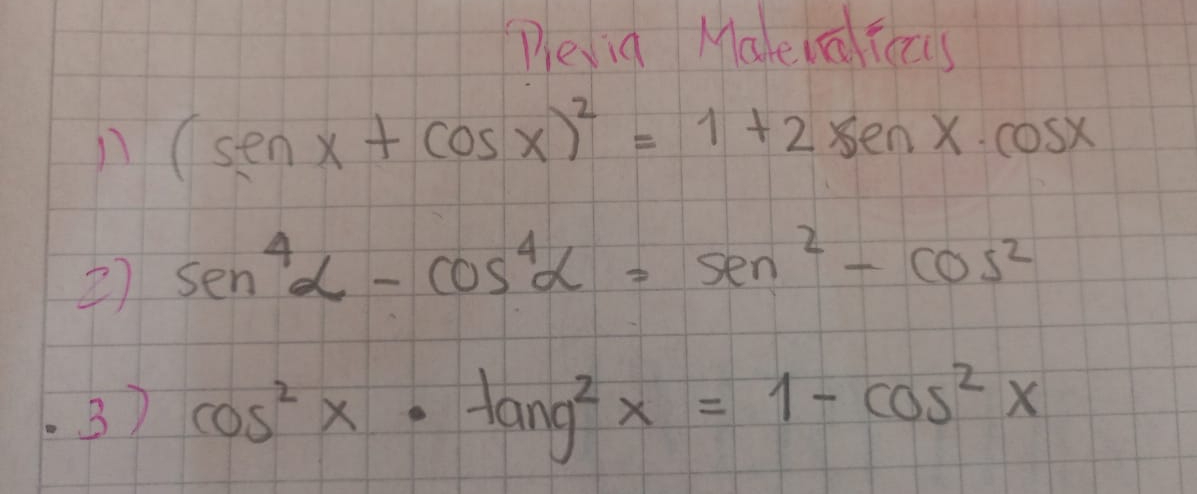 Previa Matematicas
1) (sen x + cos x)² = 1 + 2 sen x . cosx
2) sen⁴α - cos⁴α = sen² - cos²
.3) cos² x • tang² x = 1 - cos² x